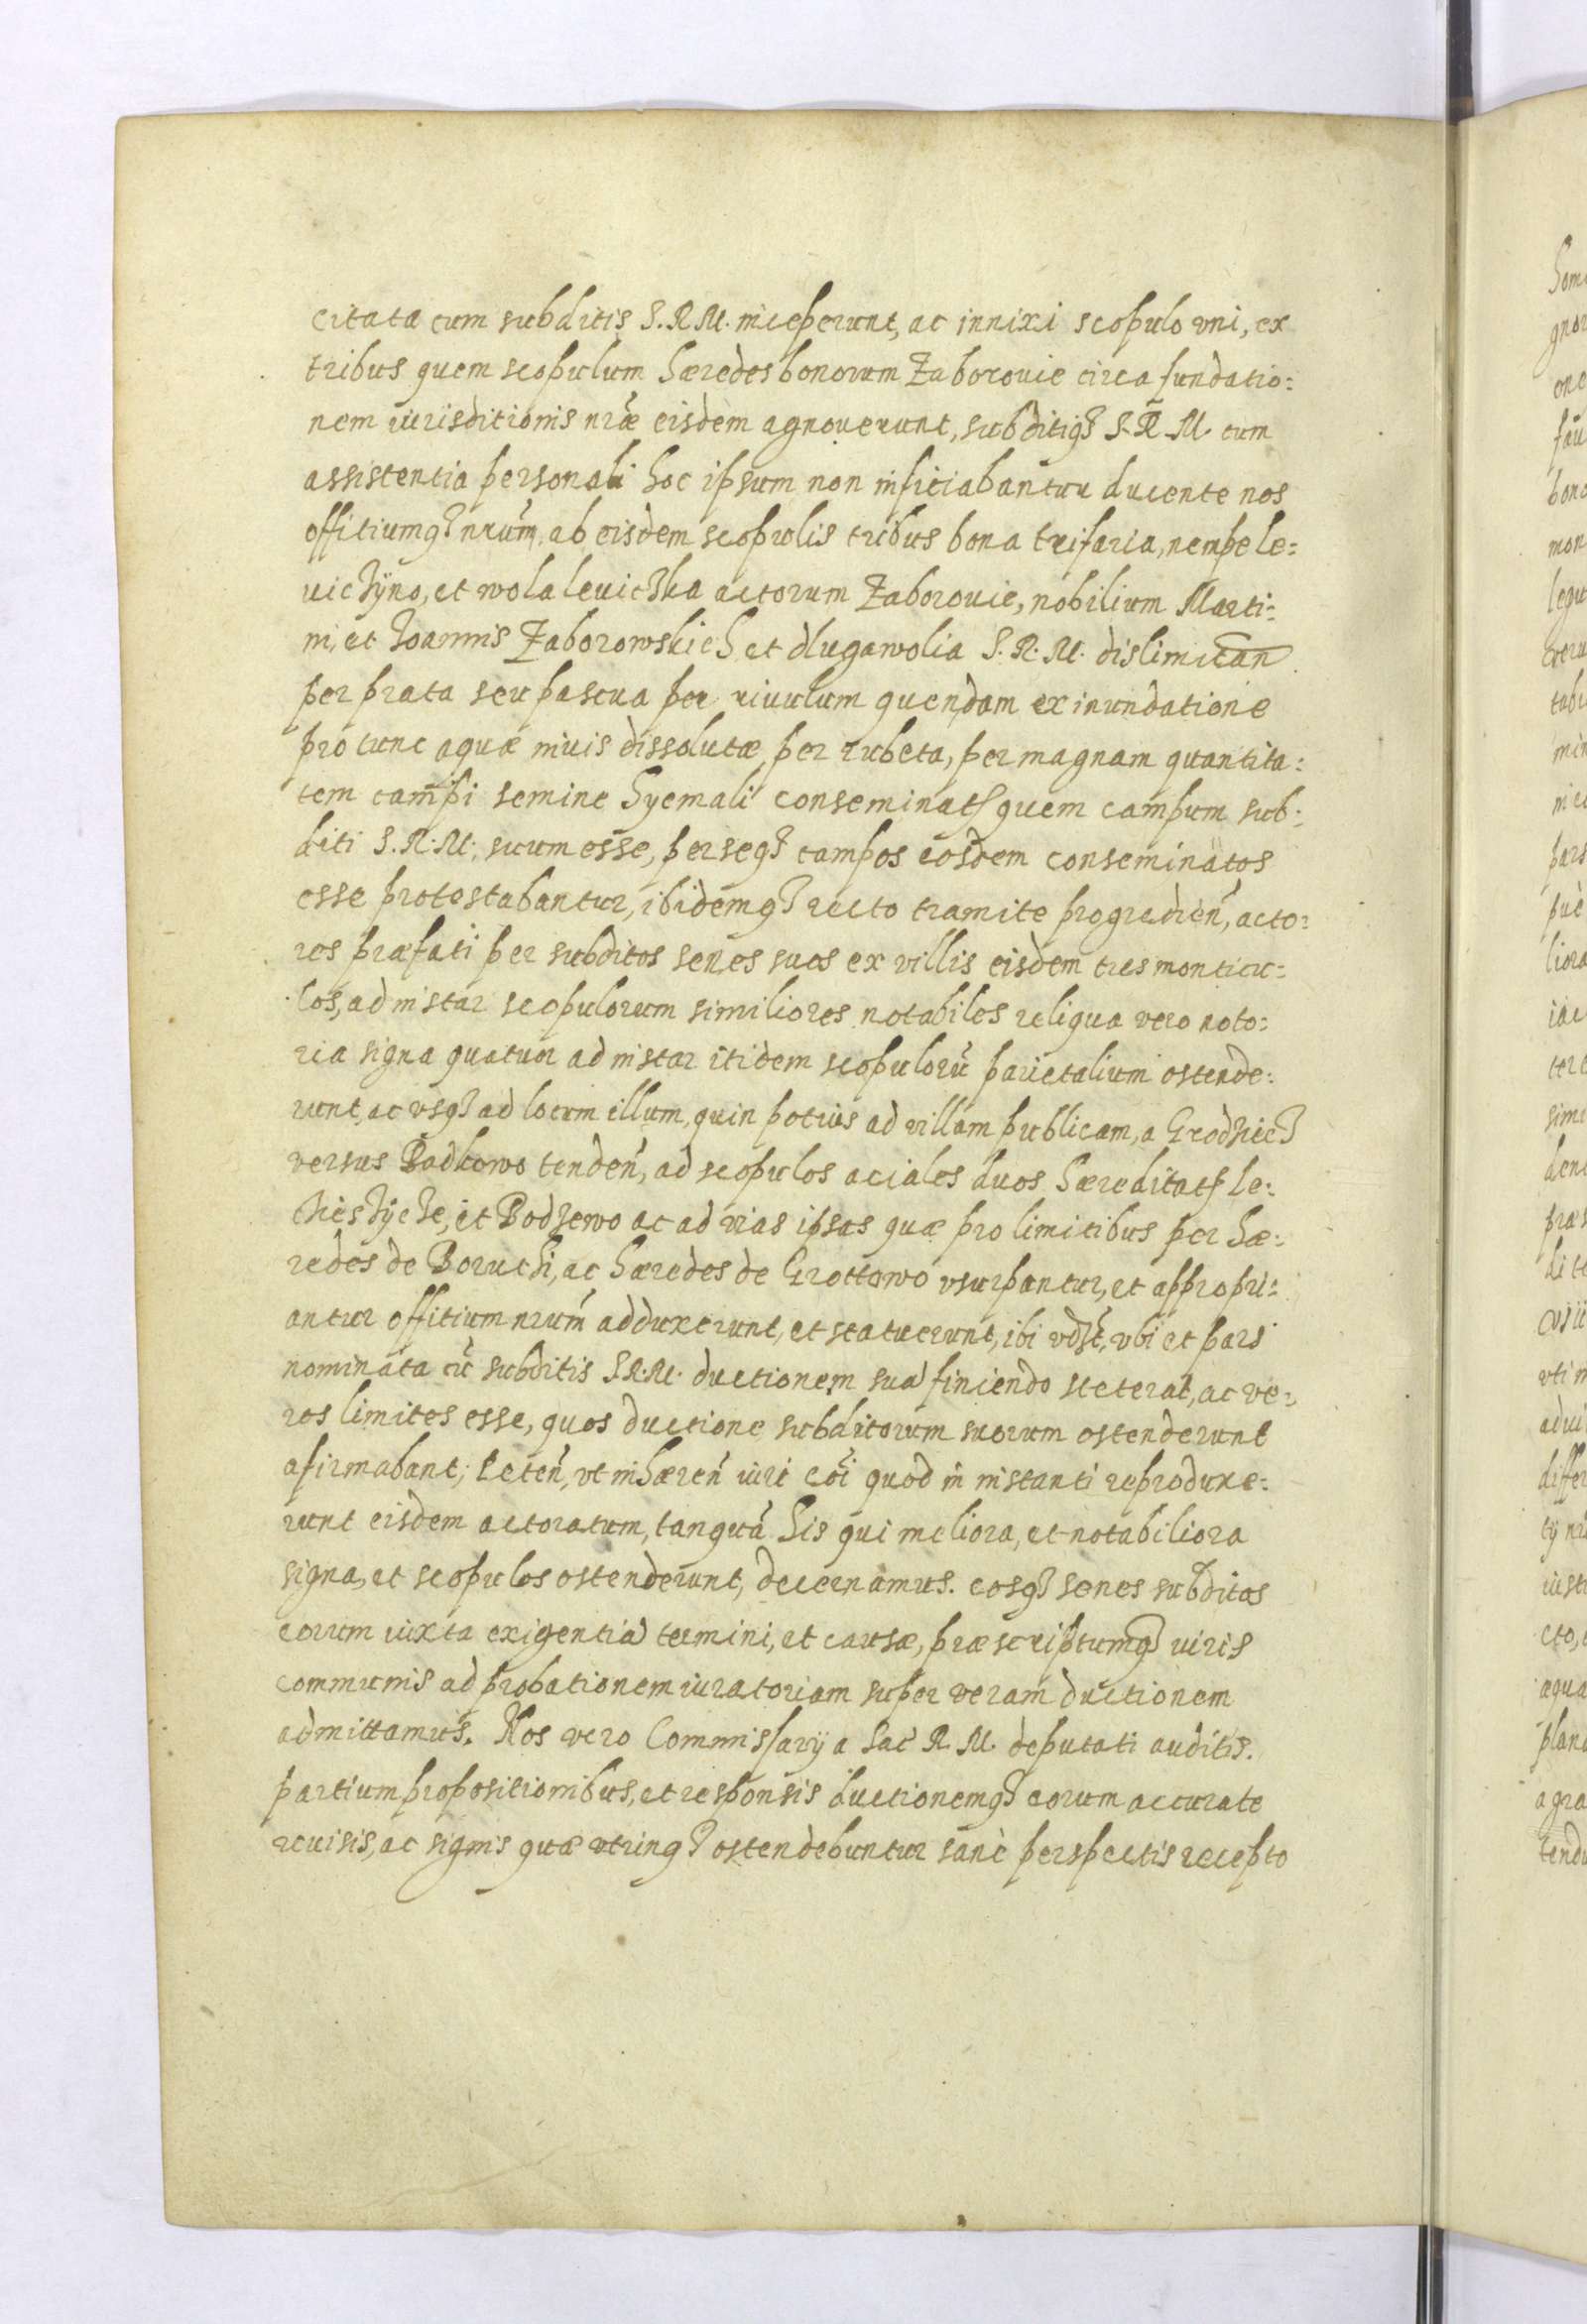 citata cum subditis S.R.M. inceperunt, ac innixi scopulo vni, ex
tribus quem scopulum hæredes bonorum Zaborouie circa fundatio:
nem iurisditionis nr̃æ eisdem agnouerunt, subditiq3 S.R.M. cum
assistentia personali hoc ipsum non inficiabantur ducente nos
offitiumq3 nrũm, ab eisdem scopulis tribus bona trifaria, nempe le:
uiczÿno, et wola leuiczka actorum Zaborouie, nobilium Marti:
ni, et Joannis Zaborowskich et dlugawolia S.R.M. dislimitan
per prata seu pascua per riuulum quendam ex inundatione
pro tunc aquæ niuis dissolutæ per rubeta, per magnam quantita:
tem campi semine hyemali conseminatę quem campum sub:
diti S.R.M. suum esse, per seq3 campos eosdem conseminatos
esse protestabantur, ibidemq3 recto tramite progredień, acto:
res præfati per subditos senes suos ex villis eisdem tres monticu:
los, ad instar scopulorum similiores notabiles reliqua vero noto:
ria signa quatuor ad instar itidem scopulorũ parietalium ostende:
runt, ac vsq3 ad locum illum, quin potius ad villam publicam, a Grodziecz
versus Badkowo tendeń, ad scopulos aciales duos hæreditatę Le:
chiesÿcze, et Bodzewo ac ad vias ipsas quæ pro limitibus per hæ:
redes de Boruchi, ac hæredes de Grottowo vsurpantur, et appropri:
antur offitium nrũm adduxerunt, et statuerunt, ibi vdzt, vbi et pars
nominata cũ subditis S.R.M. ductionem suã finiendo steterat, ac ve:
ros limites esse, quos ductione subditorum suorum ostenderunt
afirmabant; Leteń, vt inhæreń iuri cõi quod in instanti reproduxe:
runt eisdem actoratum, tanquã his qui meliora, et notabiliora
signa, et scopulos ostenderunt, decernamus. eosq3 senes subditos
eorum iuxta exigentiã termini, et causæ, præscriptumq3 iuris
communis ad probationem iuratoriam super veram ductionem
admittamus. Nos vero Commissarÿ a Sac R. M. deputati auditis
partium propositionibus, et responsis ductionemq3 eorum accurate
reuisis, ac signis quæ vtrinq3 ostendebuntur sanè perspectis recepto